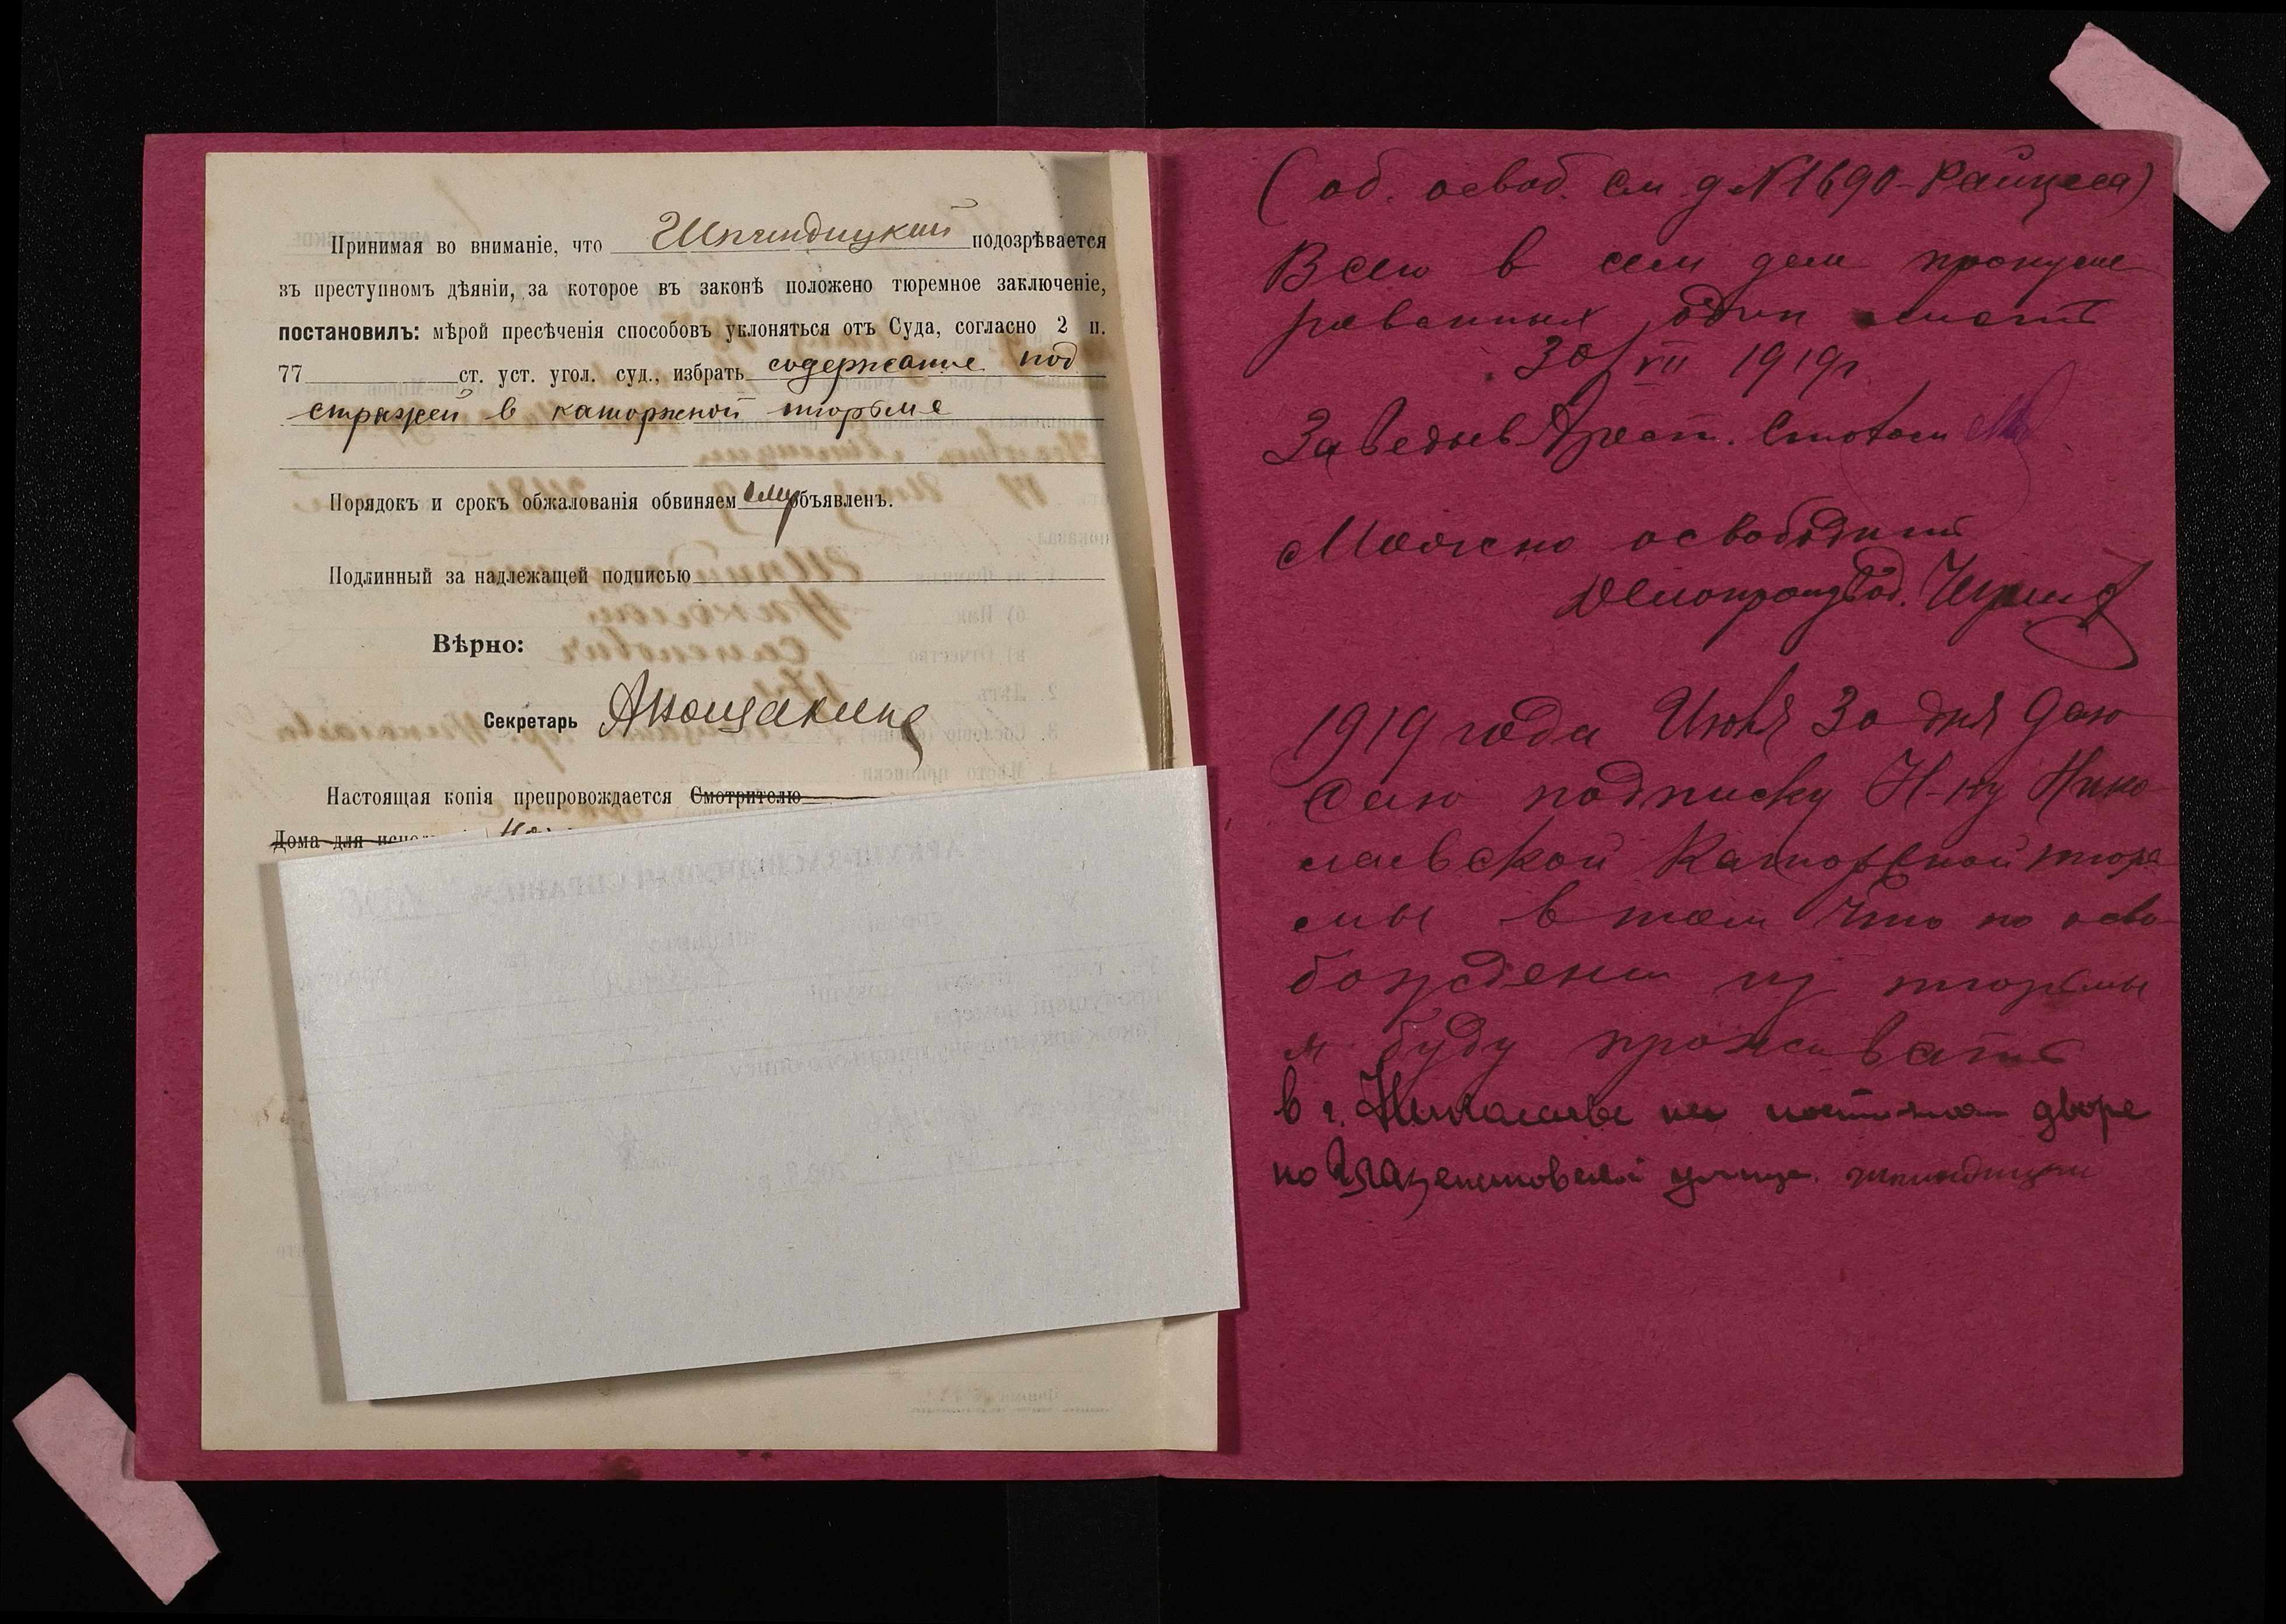 Принимая во вниманіе, что Шпиндицкий подозрѣвается
въ преступномъ дѣяніи, за которое въ законѣ положено тюремное заключеніе,
постановилъ: мѣрой пресѣченія способовъ уклоняться отъ Суда, согласно 2 п.
77 ст. уст. угол. суд., избрать содержание под
стражей в каторжной тюрьме
Порядокъ и срокъ обжалованія обвиняемому объявленъ.
Подлинный за надлежащей подписью
Вѣрно:
Секретарь
Настоящая копія препровождается Смотрителю
Дома для испол
(об. освоб. см д N 1690 - Райцеса)
Всего в сем деле пронуме
рованных один листъ
30/VII 1919г
Заведыв Арест. Столом
Можно освободить
Делопроизвод.
1919 года Июля 30 дня даю
сию подписку Н-ку Нико
лаевской Каторжной тюрь
мы в том что по осво
бождении из тюрьмы
я буду проживать
в г. Николаеве на постоялом дворе
по улице. Шпиндицкий